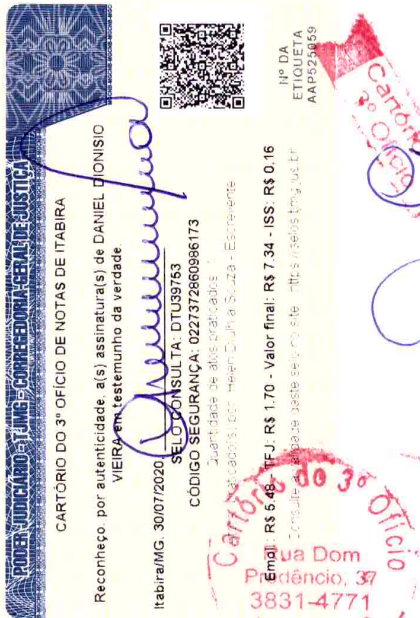 PODER JUDICIÁRIO - TJMG - CORREGEDORIA-GERAL DE JUSTIÇA
CARTÓRIO DO 3º OFÍCIO DE NOTAS DE ITABIRA
Reconheço, por autenticidade, a(s) assinatura(s) de DANIEL DIONISIO
VIEIRA em testemunho da verdade.
Itabira/MG, 30/07/2020
SELO CONSULTA: DTU39753
CÓDIGO SEGURANÇA: 0227372860986173
Quantidade de atos praticados: 1
Souza - Escrevente
Emol: R$ 5.48 - TFJ: R$ 1.70 - Valor final: R$ 7.34 - ISS: R$ 0,16
Consulte a validade deste selo no site: https://selos.tjmg.jus.br
Nº DA
ETIQUETA
AAP525959
Cartório do 3º Ofício
Rua Dom
Prudêncio, 37
3831-4771
Cartório
3º Ofício